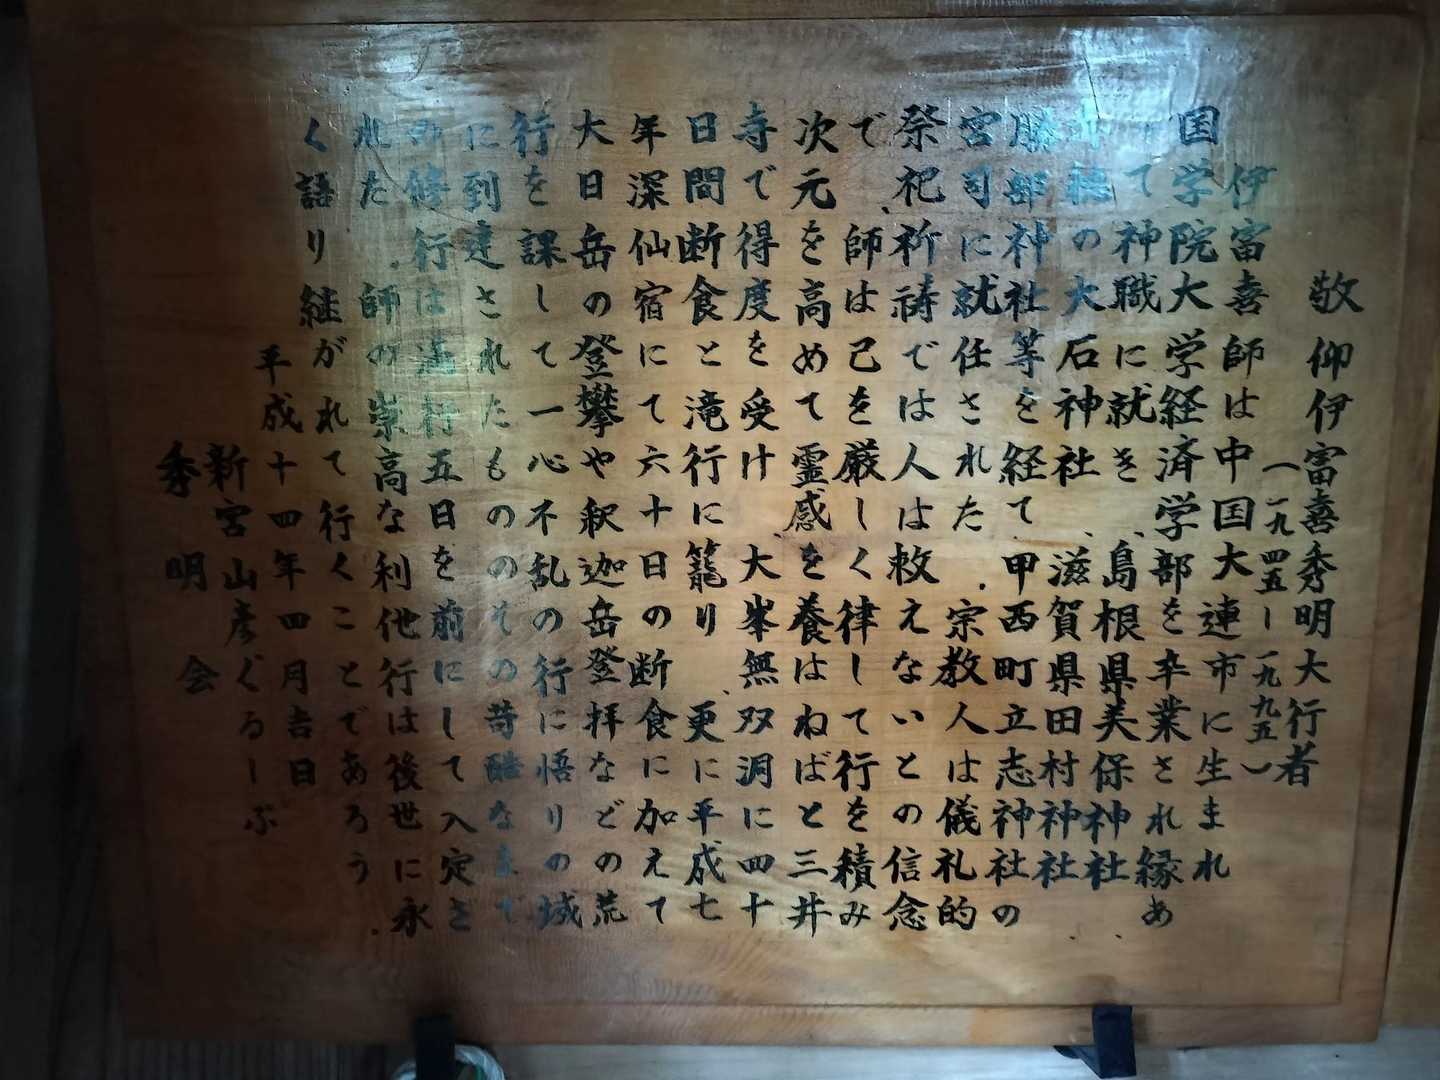 敬仰伊富喜秀明大行者
(一九四五ー一九九五)
伊富喜師は中国大連市に生まれ
国学院大学経済学部を卒業され縁あ
って神職に就き、島根県美保神社、
の大石神社、滋賀県田村神社、
勝部神社等を経て甲西町立志神社の
宮司に就任された。宗教人は儀礼的
祭祀祈祷では人は救えないとの信念
で、師は己を厳しく律して行を積み
次元を高めて霊感を養はねばと三井
寺で得度を受け、大峯無双洞に四十
日間断食と滝行に籠り、更に平成七
年深仙宿にて六十日の断食に加えて
大日岳の登攀や釈迦岳登拝などの荒
行を課して一心不乱の行に悟りの域
に到達されたもののその苛酷なまで
の修行は満行五日を前にして入定さ
れた。師の崇高な利他行は後世に永
く語り継がれて行くことであろう
平成十四年四月吉日
新宮山彦ぐるーぷ
秀明会